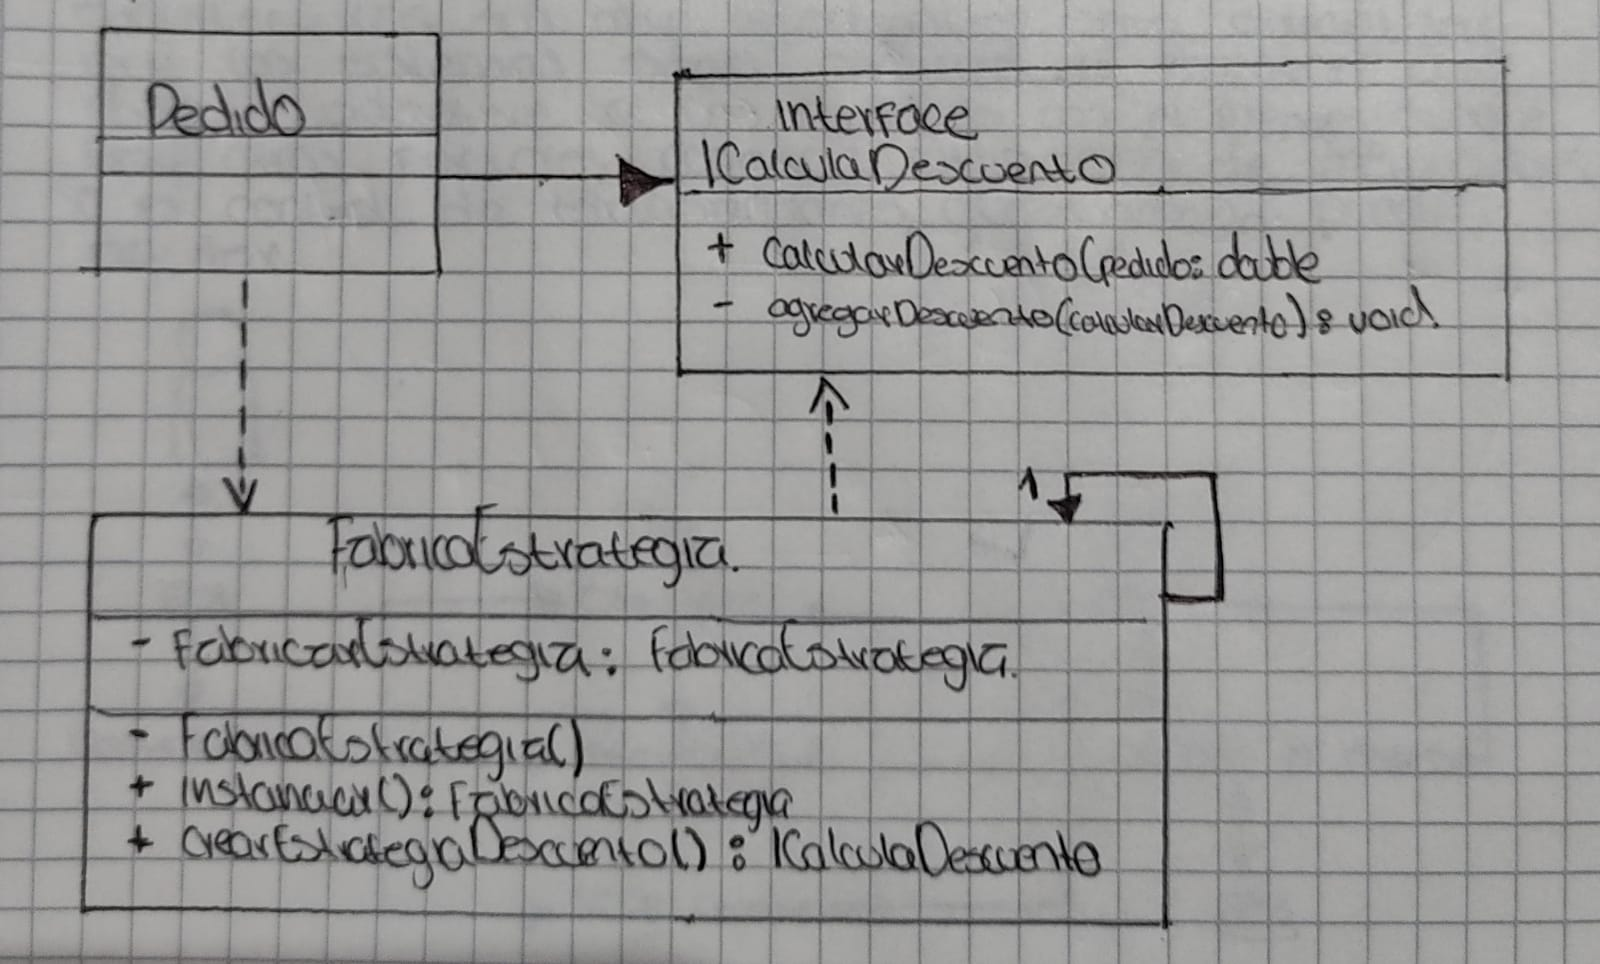 Pedido
Interface
ICalculaDescuento
+ CalcularDescuento(pedido: double
- agregarDescuento(calcularDescuento): void
1
FabricaEstrategia.
- FabricarEstrategia: FabricaEstrategia.
- FabricaEstrategia()
+ Instanciar(): FabricaEstrategia
+ crearEstrategiaDescuento(): ICalculaDescuento